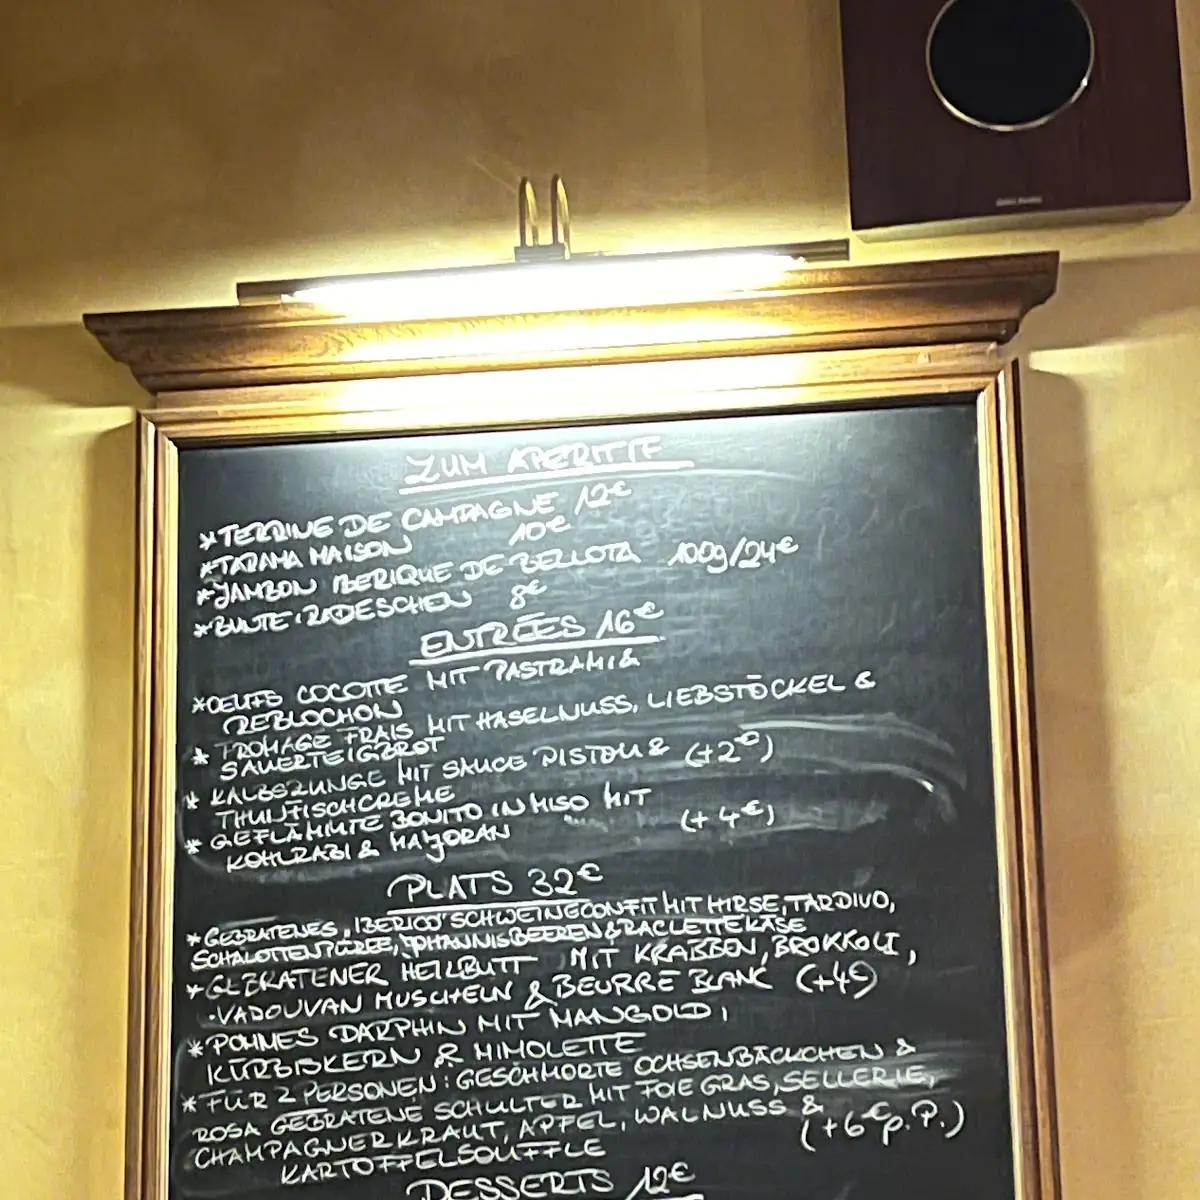 ZUM APERITIF
*TERRINE DE CAMPAGNE 12€
*TARAMA MAISON 10€
*JAMBON IBERIQUE DE BELLOTA 100g/24€
*BUNTE RADESCHEN 8€
ENTRÉES 16€
*OEUFS COCOTTE MIT PASTRAMI &
REBLOCHON
* FROMAGE FRAIS MIT HASELNUSS, LIEBSTÖCKEL &
SAUERTEIGBROT
* KALBSZUNGE MIT SAUCE PISTOU & (+2€)
THUNFISCHCREME
* GEFLÄMMTE BONITO IN MISO MIT
KOHLRABI & MAJORAN (+ 4€)
PLATS 32€
*GEBRATENES "IBERICO" SCHWEINECONFIT MIT HIRSE, TARDIVO,
SCHALOTTENPÜREE, JOHANNISBEEREN & RACLETTEKÄSE
*GEBRATENER HEILBUTT MIT KRABBEN, BROKKOLI,
VADOUVAN MUSCHELN & BEURRE BLANC (+4€)
*POMMES DARPHIN MIT MANGOLD,
KÜRBISKERN & MIMOLETTE
* FÜR 2 PERSONEN: GESCHMORTE OCHSENBÄCKCHEN &
ROSA GEBRATENE SCHULTER MIT FOIE GRAS, SELLERIE,
CHAMPAGNERKRAUT, APFEL, WALNUSS &
KARTOFFELSOUFFLE (+6€ p.P.)
DESSERTS 12€